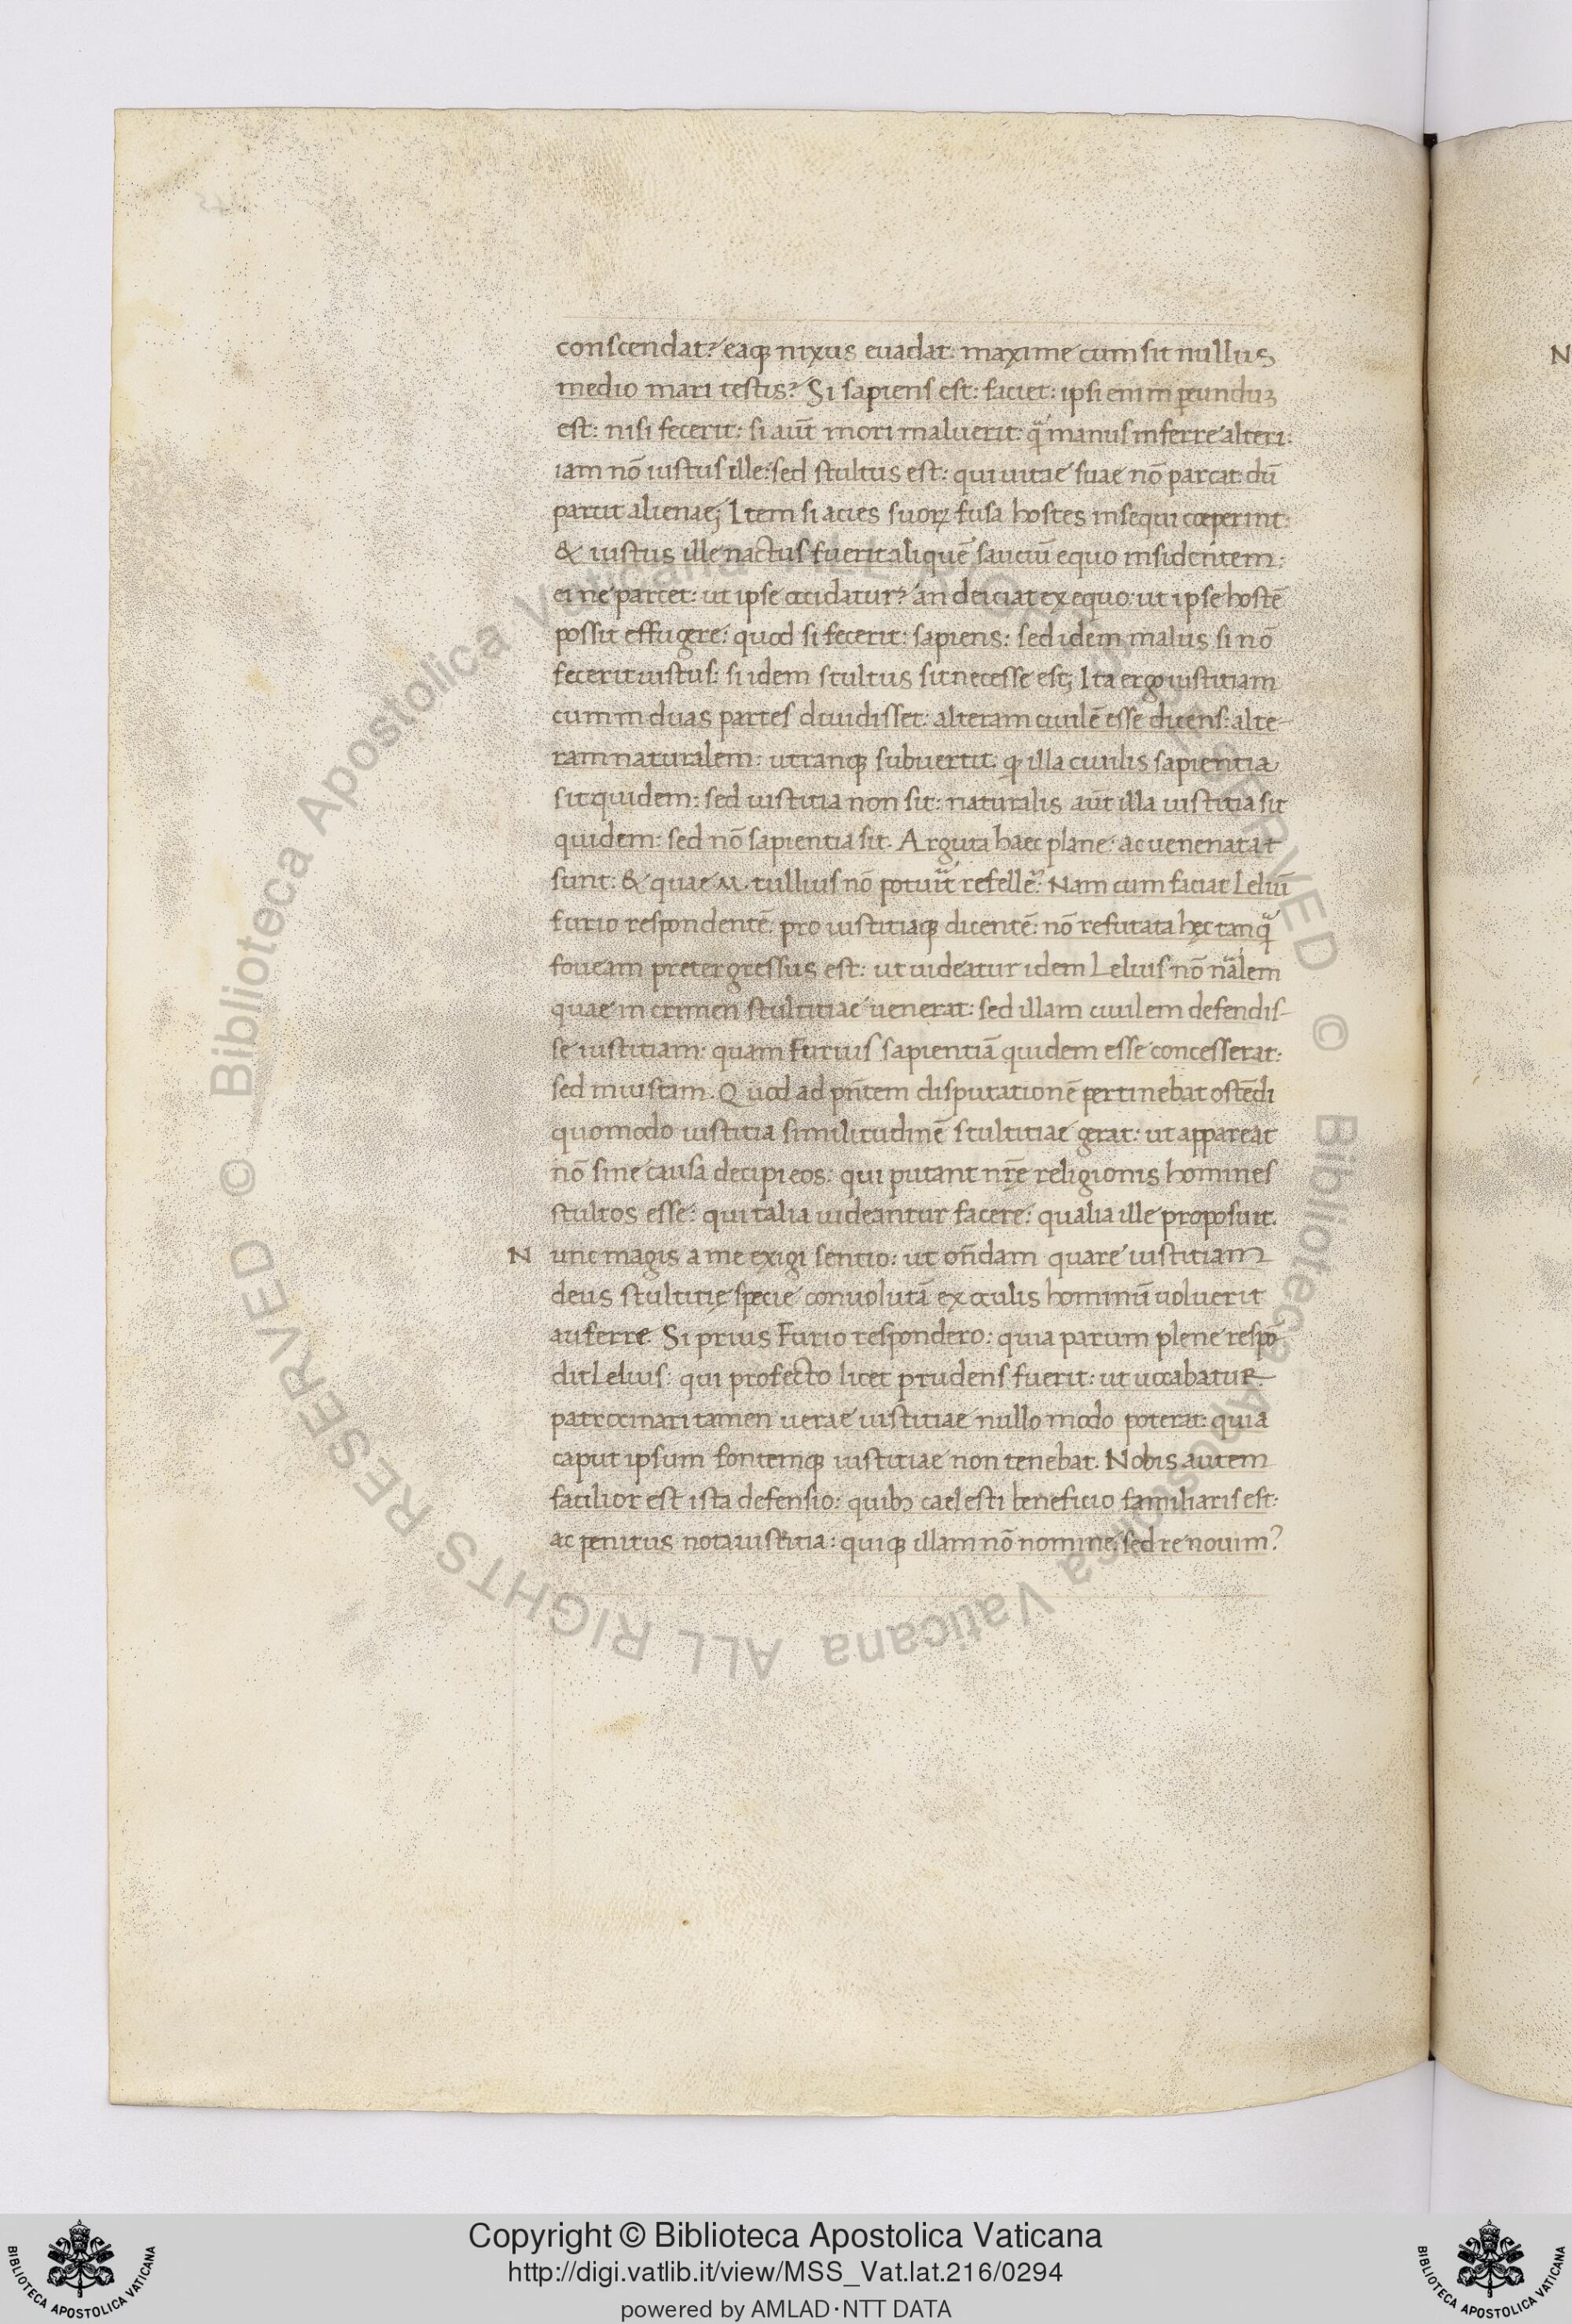 conscendat? eaq; nixus euadat: maxime cum sit nullus
medio mari testis? Si sapiens est: faciet: ipsi enim ꝑeunduꝫ
est: nisi fecerit: si aut̄ mori maluerit: qͣ manus inferre alteri:
iam nō iustus ille: sed stultus est: qui uitae suae nō parcat: dū
parcit alienae; Item si acies suorꝝ fusa hostes insequi coeperint:
& iustus ille nactus fuerit aliquē sauciū equo insidentem:
ei ne parcet: ut ipse occidatur? an deiciat ex equo: ut ipse hostē
possit effugere: quod si fecerit: sapiens: sed idem malus si nō
fecerit iustus: si idem stultus sit necesse est; Ita ergo iustitiam
cum in duas partes diuidisset: alteram ciuilē esse dicens: alte-
ram naturalem: utranq; subuertit: ꝙ illa ciuilis sapientia
sit quidem: sed iustitia non sit: naturalis aut̄ illa iustitia sit
quidem: sed nō sapientia sit. Arguta haec plane: ac uenenata
sunt: & quae M. tullius nō potuit refelle? Nam cum faciat Leliū
furio respondentē: pro iustitiaq; dicentē: nō refutata hęc tanqͣ
foueam pretergressus est: ut uideatur idem Lelius nō nālem
quae in crimen stultitiae uenerat: sed illam ciuilem defendis-
se iustitiam: quam Furius sapientiā quidem esse concesserat:
sed iniustam. Quod ad pn̄tem disputationē pertinebat ostēdi
quomodo iustitia similitudinē stultitiae gerat: ut appareat
nō sine causa decipi eos: qui putant nr̄ę religionis homines
stultos esse: qui talia uideantur facere: qualia ille proposuit.
N unc magis a me exigi sentio: ut on̄dam quare iustitiam
deus stultitię specie conuolutā ex oculis hominū uoluerit
auferre. Si prius Furio respondero: quia parum plene respō
dit Lelius: qui profecto licet prudens fuerit: ut uocabatur
patrocinari tamen uerae iustitiae nullo modo poterat: quia
caput ipsum fontemq; iustitiae non tenebat. Nobis autem
facilior est ista defensio: quibꝫ caelesti beneficio familiaris est:
ac penitus nota iustitia: quiq; illam nō nomine: sed re nouim?
N
© Biblioteca Apostolica Vaticana ALL RIGHTS RESERVED
© Biblioteca Apostolica Vaticana ALL RIGHTS RESERVED
Copyright © Biblioteca Apostolica Vaticana
http://digi.vatlib.it/view/MSS_Vat.lat.216/0294
powered by AMLAD·NTT DATA
BIBLIOTECA APOSTOLICA VATICANA
BIBLIOTECA APOSTOLICA VATICANA